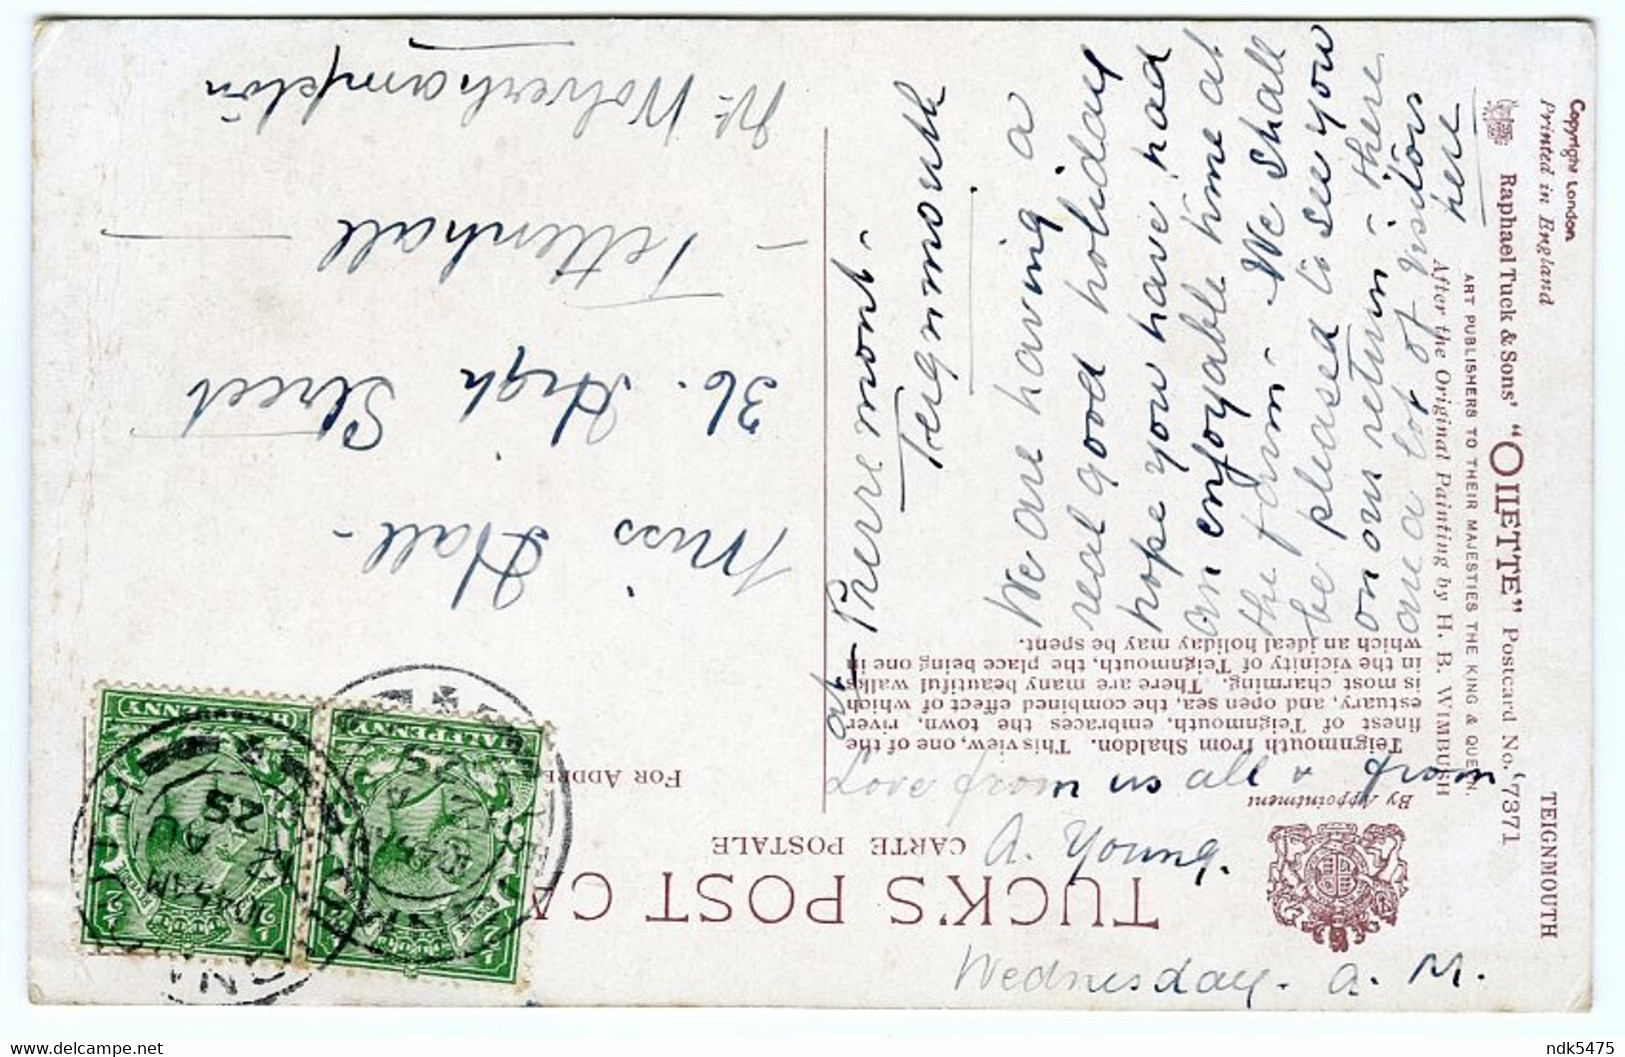 TUCK'S POST CA
CARTE POSTALE
By Appointment
FOR ADDRE
Teignmouth from Shaldon. This view, one of the
finest of Teignmouth, embraces the town, river,
estuary, and open sea, the combined effect of which
is most charming. There are many beautiful walks
in the vicinity of Teignmouth, the place being one
which an ideal holiday may be spent.
TEIGNMOUTH
Raphael Tuck & Sons' "OILETTE" Postcard No. 7371
ART PUBLISHERS TO THEIR MAJESTIES THE KING & QUEEN.
After the Original Painting by H. B. WIMBUSH
Printed in England
Copyright London
Wednesday. a. M.
at
Teignmouth
We are having a
real good holiday
hope you have had
an enjoyable time at
the farm - We shall
be pleased to see you
on our return - there
are a lot of visitors
here
Love from us all & from
A. Young.
Miss Hall -
36. High Street
- Tettenhall
Nr Wolverhampton
HALFPENNY
HALFPENNY
½
½
½
½
10 45 AM
12 AU
25
ndk5475
delcampe.net